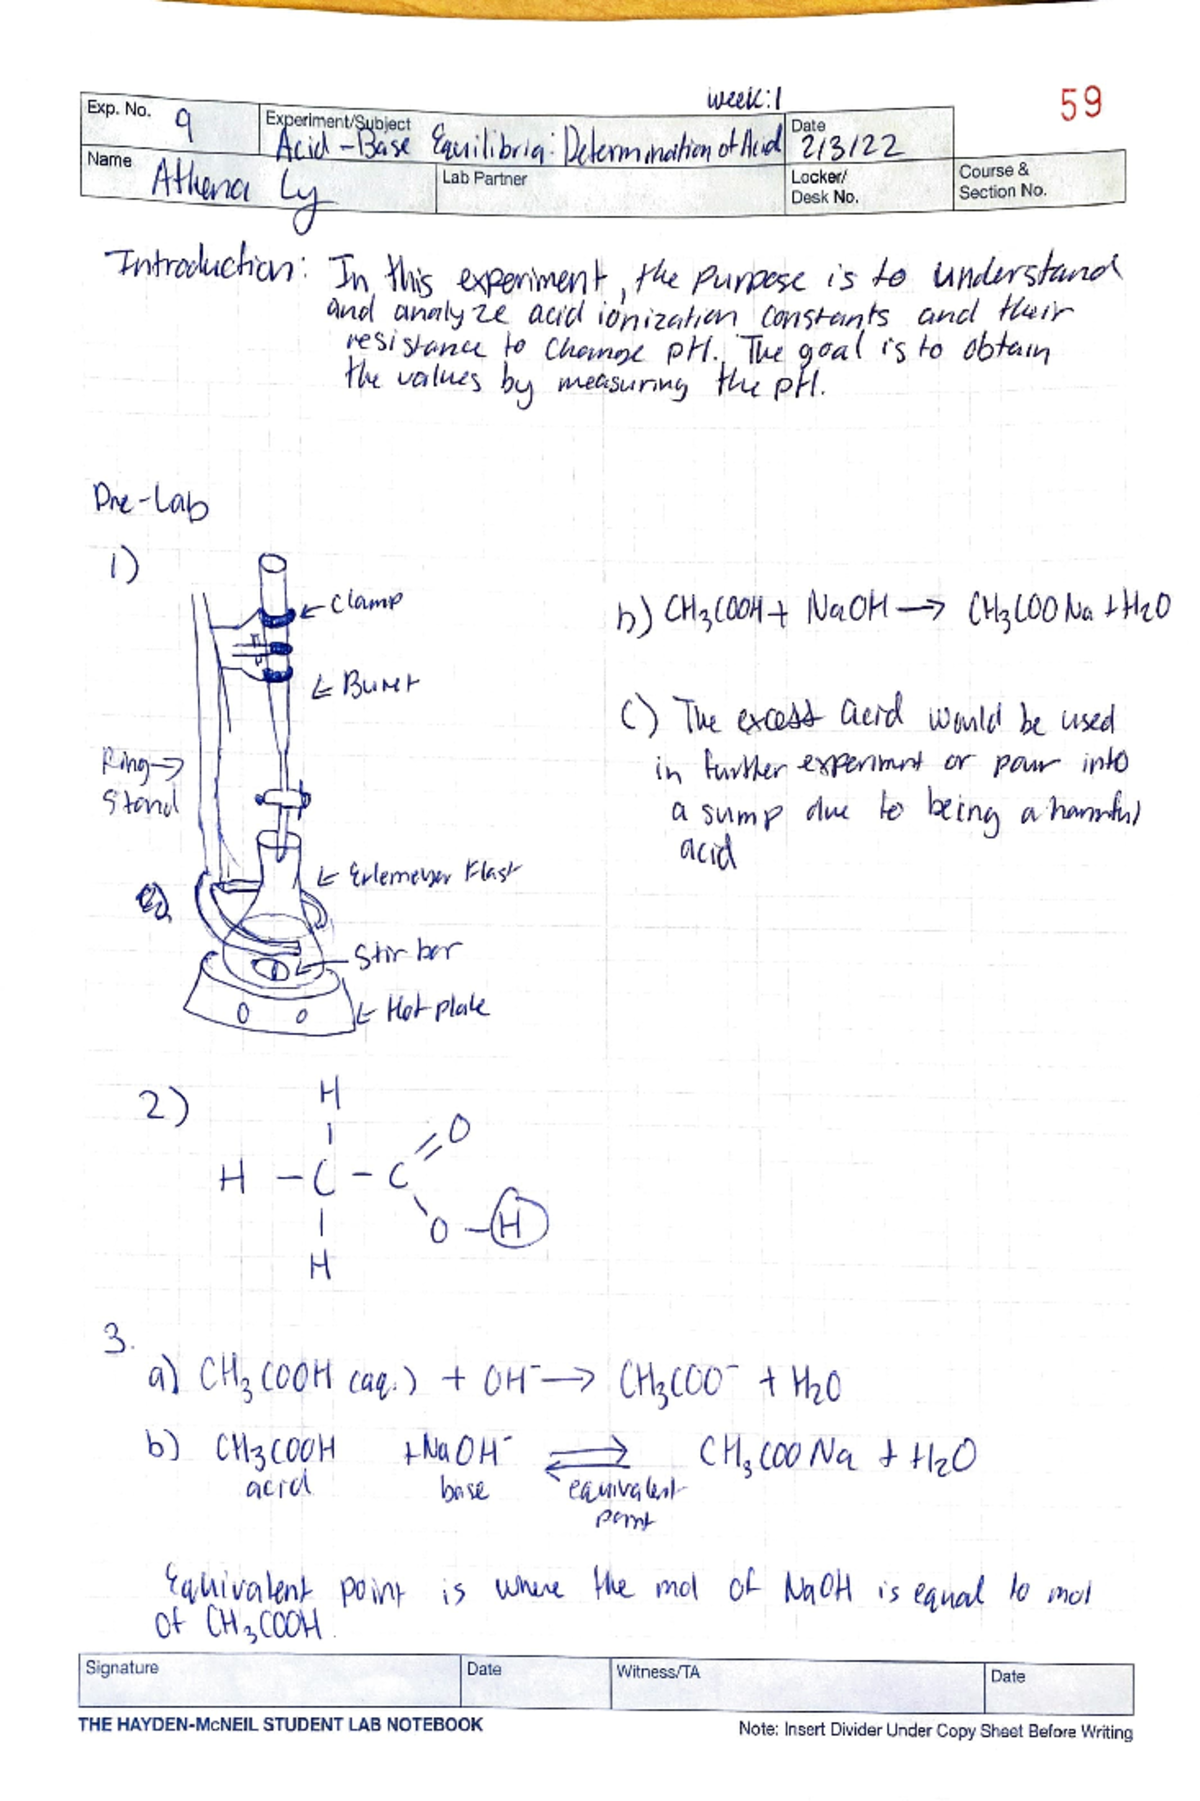 week:1
59
Exp. No. 9
Experiment/Subject
Acid-Base Equilibria: Determination of Acid
Date
2/3/22
Name
Athena Ly
Lab Partner
Locker/
Desk No.
Course &
Section No.
Introduction: In this experiment, the purpose is to understand
and analyze acid ionization constants and their
resistance to change pH. The goal is to obtain
the values by measuring the pH.
Pre-Lab
1)
← Clamp
← Buret
Ring →
Stand
← Erlemeyer Flask
Stir bar
← Hot plate
b) CH3COOH + NaOH → CH3COONa + H2O
c) The excess acid would be used
in further experiment or pour into
a sump due to being a harmful
acid
2)
H
H - C - C = O
O - H
H
3.
a) CH3COOH (aq.) + OH⁻ → CH3COO⁻ + H2O
b) CH3COOH + NaOH⁻ ⇌ CH3COONa + H2O
acid base equivalent
point
Equivalent point is where the mol of NaOH is equal to mol
of CH3COOH.
Signature
Date
Witness/TA
Date
THE HAYDEN-McNEIL STUDENT LAB NOTEBOOK
Note: Insert Divider Under Copy Sheet Before Writing